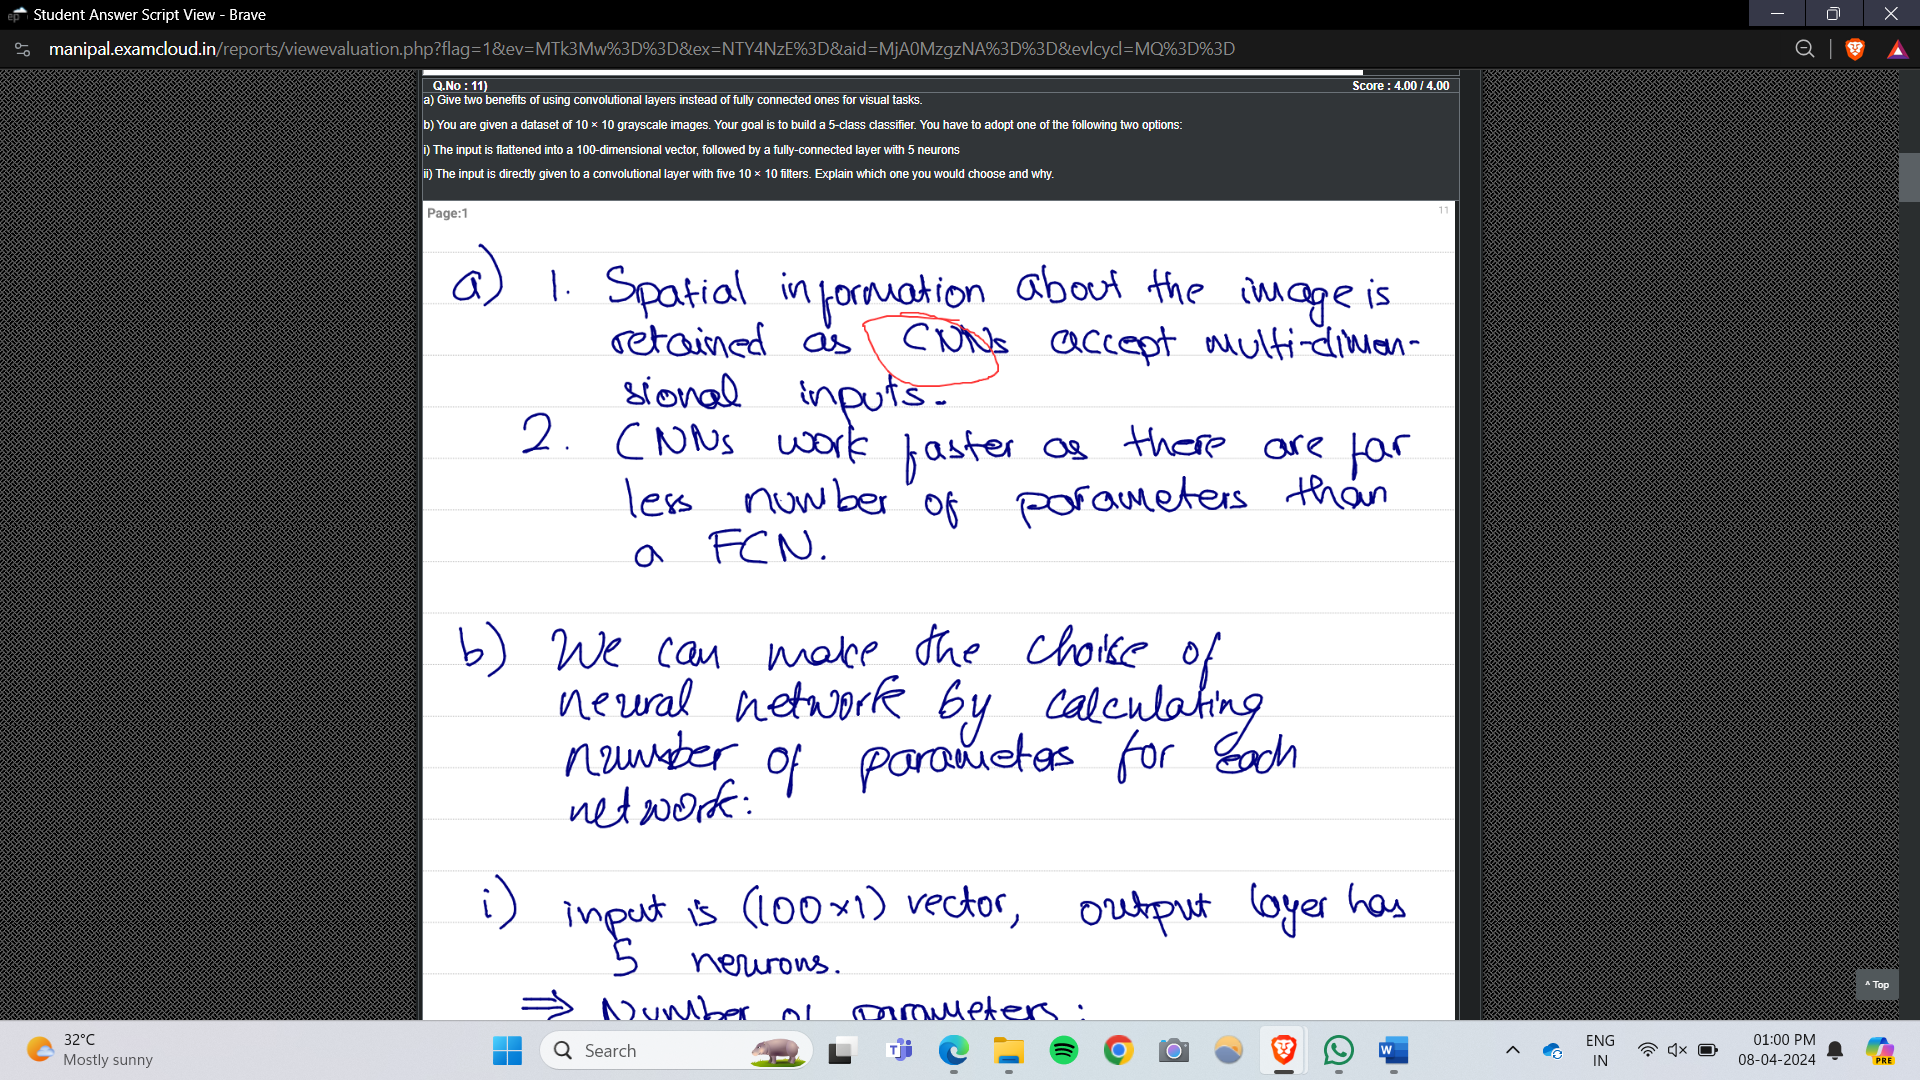 Student Answer Script View - Brave
manipal.examcloud.in/reports/viewevaluation.php?flag=1&ev=MTk3Mw%3D%3D&ex=NTY4NzE%3D&aid=MjA0MzgzNA%3D%3D&evlcycl=MQ%3D%3D
Q.No : 11) Score : 4.00 / 4.00
a) Give two benefits of using convolutional layers instead of fully connected ones for visual tasks.
b) You are given a dataset of 10 × 10 grayscale images. Your goal is to build a 5-class classifier. You have to adopt one of the following two options:
i) The input is flattened into a 100-dimensional vector, followed by a fully-connected layer with 5 neurons
ii) The input is directly given to a convolutional layer with five 10 × 10 filters. Explain which one you would choose and why.
Page:1 11
a) 1. Spatial information about the image is
retained as CNNs accept multi-dimen-
sional inputs.
2. CNNs work faster as there are far
less number of parameters than
a FCN.
b) We can make the choise of
neural network by calculating
number of parameters for each
network:
i) input is (100×1) vector, output layer has
5 neurons.
⇒ Number of parameters:
^ Top
32°C
Mostly sunny
Search
ENG
IN
01:00 PM
08-04-2024
PRE